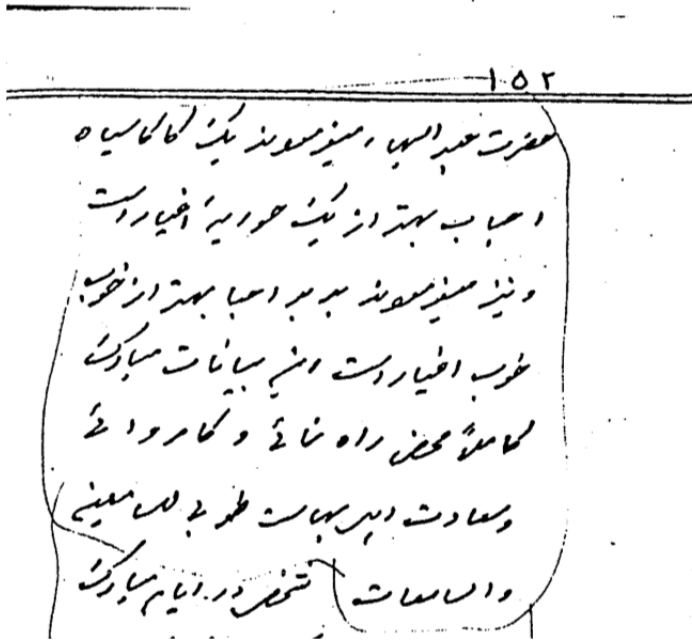 ۱۵۲
حضرت عبدالبهاء میفرمودند یک کاکا سیاه
احباب بهتر از یک حوریهٔ اغیار است
و نیز میفرمودند بد بد احبا بهتر از خوب
خوب اغیار است این بیانات مبارک
کاملاً محض راه نمائی و کامروائی
و سعادت اهل بهاست طوبی للسامعین
والسامعات شخصی در ایام مبارک